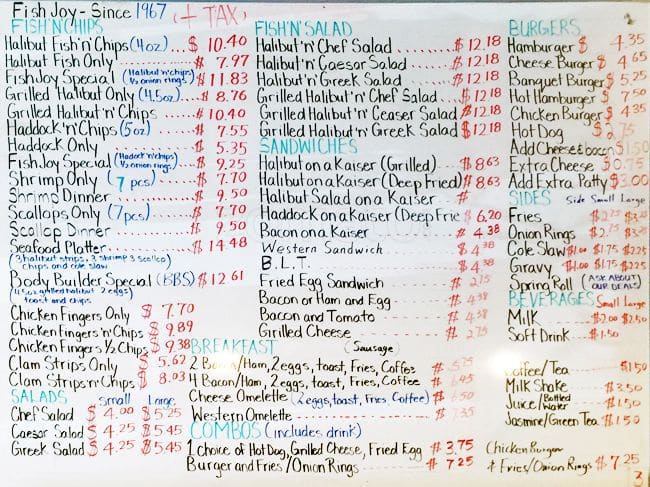 Fish Joy - Since 1967 (+ TAX)
FISH'N'CHIPS
Halibut Fish'n'Chips (4oz) ... $ 10.40
Halibut Fish Only ... $ 7.97
FishJoy Special (Halibut'n'chips) ½ onion rings) $ 11.83
Grilled Halibut Only (4.5oz) .. $ 8.76
Grilled Halibut'n'Chips ..... $ 10.40
Haddock'n'Chips (5oz) ..... $ 7.55
Haddock Only ..... $ 5.35
FishJoy Special (Haddock'n'chips) ½ onion rings) .. $ 9.25
Shrimp Only (7pcs) ..... $ 7.70
Shrimp Dinner ..... $ 9.50
Scallops Only (7pcs) ..... $ 7.70
Scallop Dinner ..... $ 9.50
Seafood Platter ..... $ 14.48
(3 halibut strips, 3 shrimp 3 scallop
chips and cole slaw
Body Builder Special (BBS) $ 12.61
(4.5oz grilled halibut 2 eggs)
toast and chips
Chicken Fingers Only $ 7.70
Chicken Fingers'n'Chips $ 9.89
Chicken Fingers ½ Chips $ 9.38
Clam Strips Only $ 5.62
Clam Strips'n'Chips $ 8.03
SALADS Small Large
Chef Salad $ 4.00 $ 5.25
Caesar Salad $ 4.25 $ 5.45
Greek Salad $ 4.25 $ 5.45
FISH'N'SALAD
Halibut'n'Chef Salad ..... $ 12.18
Halibut'n'Caesar Salad ..... $ 12.18
Halibut'n'Greek Salad ..... $ 12.18
Grilled Halibut'n'Chef Salad ... $ 12.18
Grilled Halibut'n'Ceaser Salad $ 12.18
Grilled Halibut'n Greek Salad $ 12.18
SANDWICHES
Halibut on a Kaiser (Grilled) ... $ 8.63
Halibut on a Kaiser (Deep Fried) $ 8.63
Halibut Salad on a Kaiser ... $
Haddock on a Kaiser (Deep Frie $ 6.20
Bacon on a Kaiser ... $ 4.38
Western Sandwich $ 4.38
B.L.T. $ 4.38
Fried Egg Sandwich $ 2.75
Bacon or Ham and Egg $ 4.38
Bacon and Tomato $ 4.38
Grilled Cheese $ 2.75
BREAKFAST (Sausage)
2 Bacon/Ham, 2 eggs, toast, Fries, Coffee $
4 Bacon/Ham, 2 eggs, toast, Fries, Coffee $
Cheese Omelette (2 eggs, toast, Fries, Coffee) $
Western Omelette $ 7.35
COMBOS (includes drink)
1 choice of Hot Dog, Grilled Cheese, Fried Egg $ 3.75
Burger and Fries/Onion Rings $ 7.25
BURGERS
Hamburger $ 4.35
Cheese Burger $ 4.65
Banquet Burger $ 5.25
Hot Hamburger $ 7.50
Chicken Burger $ 4.35
Hot Dog $ 2.75
Add Cheese & bacon $1.50
Extra Cheese $0.75
Add Extra Patty $3.00
SIDES Side Small Large
Fries $2.75
Onion Rings $2.75
Cole Slaw $1.00 $1.75 $2.25
Gravy $1.00 $1.75 $2.25
Spring Roll (ASK ABOUT OUR DEALS)
BEVERAGES Small Large
Milk $2.00 $2.50
Soft Drink $1.50
Coffee/Tea $1.50
Milk Shake $3.50
Juice/Bottled Water $1.50
Jasmine/Green Tea $1.50
Chicken Burger
+ Fries/Onion Rings $ 7.25
3